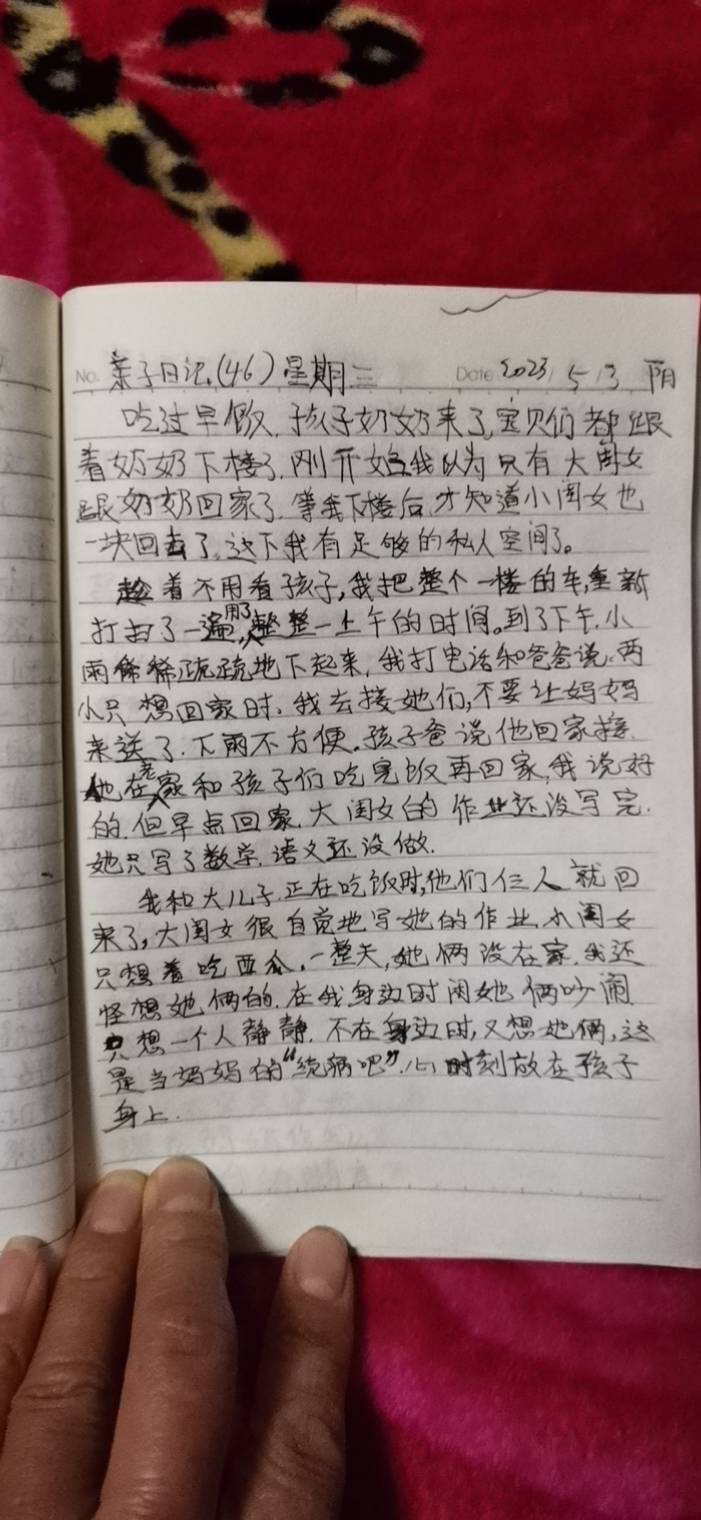 No. 亲子日记.(46)星期三 Date 2023 5 3 阴
吃过早饭,孩子奶奶来了,宝贝们都跟
着奶奶下楼了.刚开始我以为只有大闺女
跟奶奶回家了.等我下楼后,才知道小闺女也
一块回去了,这下我有足够的私人空间了。
趁着不用看孩子,我把整个一楼的车,重新
打击了一遍,用了整整一上午的时间。到了下午,小
雨稀稀疏疏地下起来,我打电话和爸爸说,两
小只想回家时,我去接她们,不要让妈妈
来送了.下雨不方便.孩子爸说他回家接.
他在老家和孩子们吃完饭再回家,我说好
的.但早点回家,大闺女的作业还没写完.
她只写了数学,语文还没做.
我和大儿子正在吃饭时,他们仨人就回
来了,大闺女很自觉地写她的作业,小闺女
只想着吃西瓜.一整天,她俩没在家,我还
怪想她俩的.在我身边时闲她俩吵闹
只想一个人静静.不在身边时,又想她俩,这
是当妈妈的“统病吧”.心时刻放在孩子
身上.